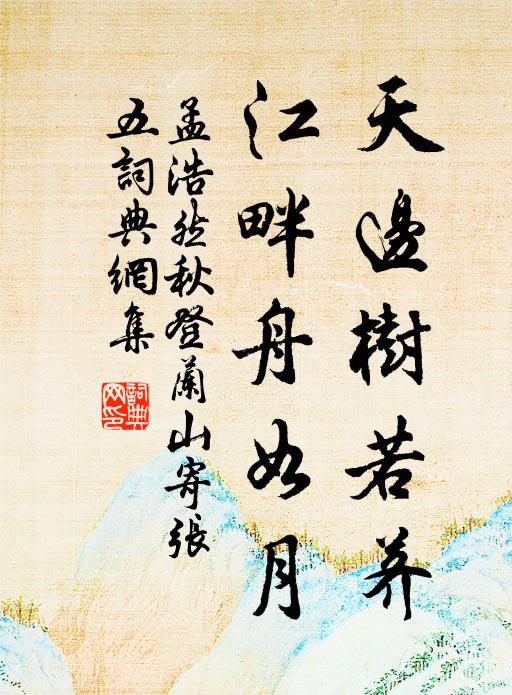 天邊樹若荠
江畔舟如月
孟浩然秋登蘭山寄張
五詞典網集
詞典
網印